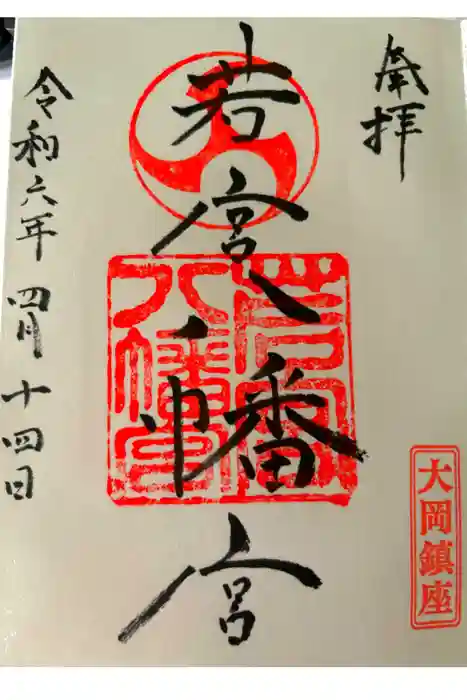 奉拝
若宮八幡宮
若宮八幡宮
大岡鎮座
令和六年四月十四日